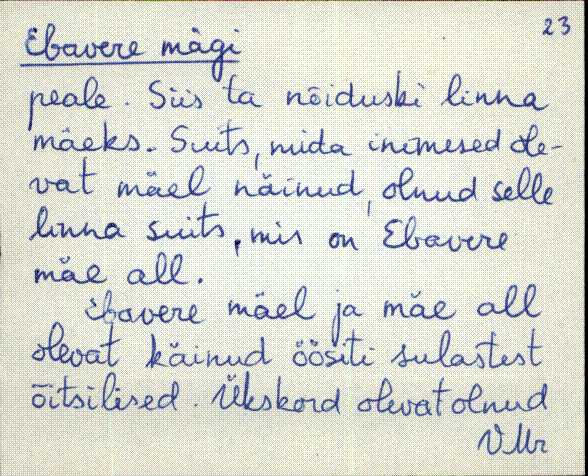 23
Ebavere mägi
peale. Siis ta nõiduski linna
mäeks. Suits, mida inimesed ole-
vat mäel näinud, olnud selle
linna suits, mis on Ebavere
mäe all.
Ebavere mäel ja mäe all
olevat käinud öösiti sulastest
õitsilised. Ükskord olevat olnud
VMr